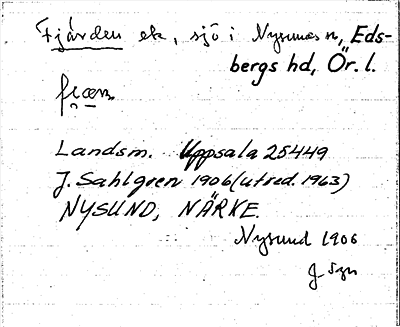 Fjärden ek, sjö i Nysunds sn, Eds-
bergs hd, Ör. l.
Landsm. Uppsala 25449
J. Sahlgren 1906 (utred. 1963)
NYSUND, NÄRKE.
Nysund 1906
J. Sgn